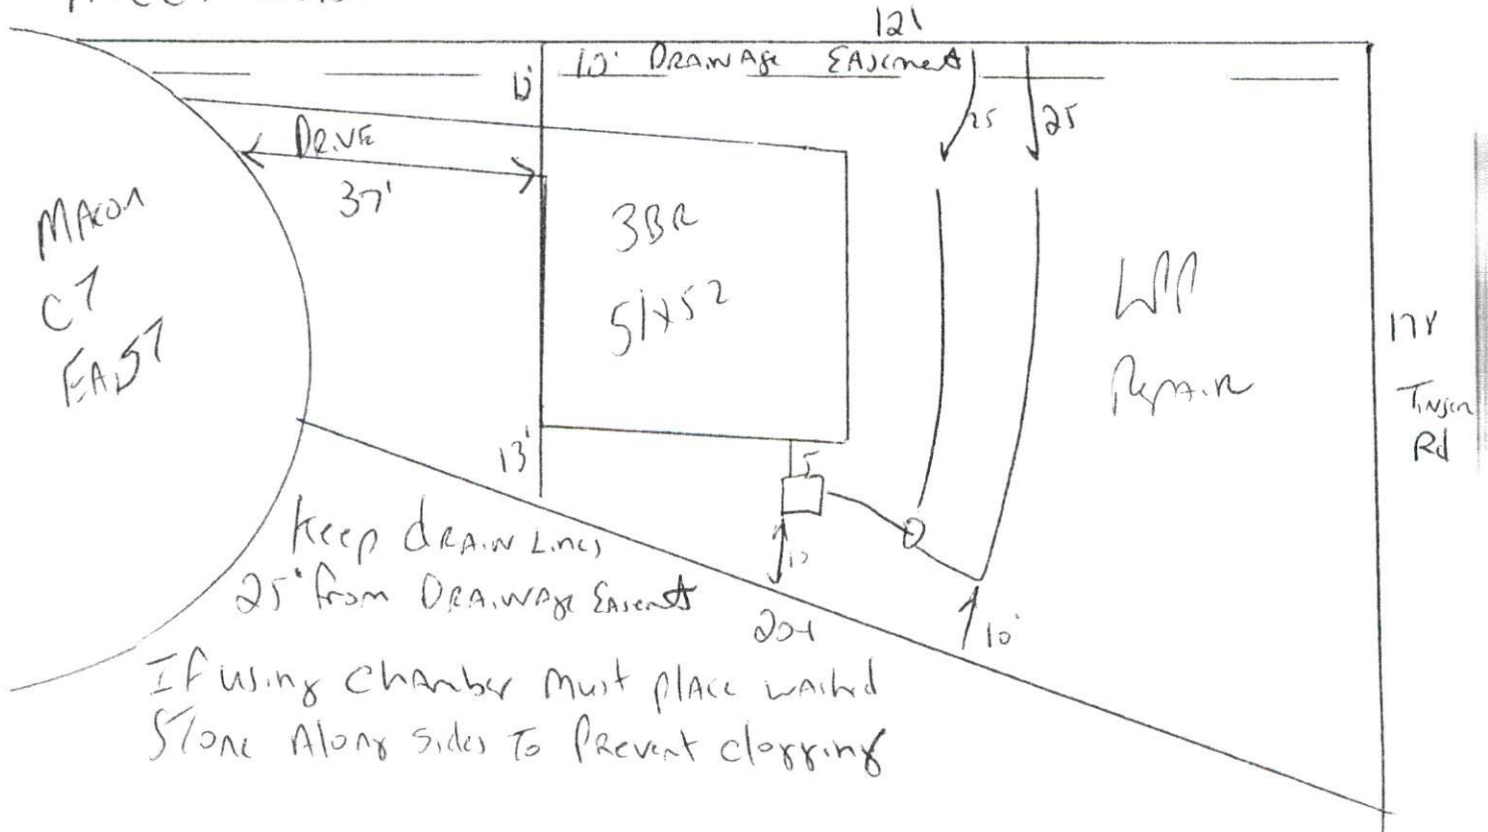 121
10' DRAINAGE EASEMENT
25
25
DRIVE
37'
MACON
CT
EAST
3BR
51x52
Repair
Rd
13'
5
10
10'
Keep drain Lines
25' from DRAINAGE Easement
If using Chamber Must place washed
Stone Along sides To Prevent clogging